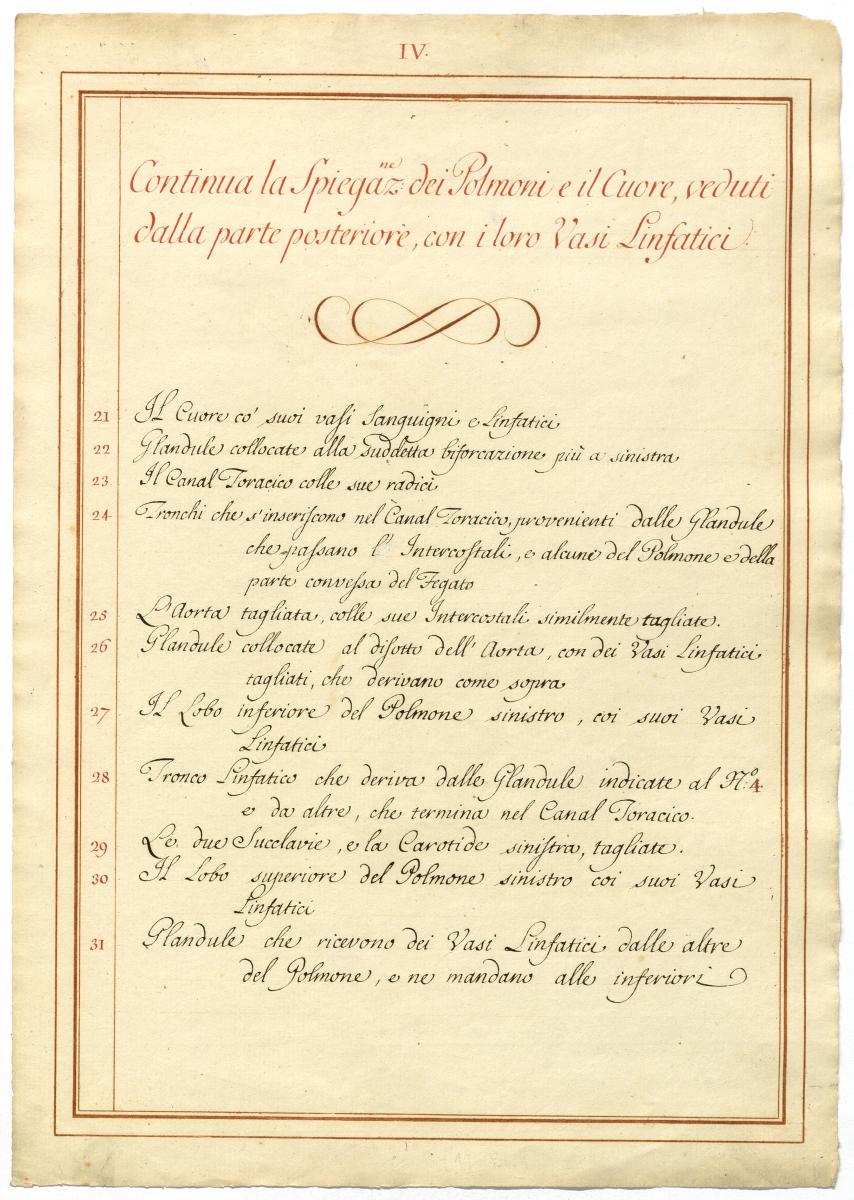 IV.
Continua la Spiegaz:ne dei Polmoni e il Cuore, veduti
dalla parte posteriore, con i loro Vasi Linfatici.
21 Il Cuore co' suoi vasi sanguigni e Linfatici
22 Glandule collocate alla suddetta biforcazione più a sinistra
23 Il Canal Toracico colle sue radici
24 Tronchi che s'inseriscono nel Canal Toracico, provenienti dalle Glandule
che passano l' Intercostali, e alcune del Polmone e della
parte convessa del Fegato
25 L'Aorta tagliata, colle sue Intercostali similmente tagliate.
26 Glandule collocate al disotto dell'Aorta, con dei Vasi Linfatici
tagliati, che derivano come sopra
27 Il Lobo inferiore del Polmone sinistro, coi suoi Vasi
Linfatici
28 Tronco Linfatico che deriva dalle Glandule indicate al N.º 4
e da altre, che termina nel Canal Toracico.
29 Le due Succlavie, e la Carotide sinistra, tagliate.
30 Il Lobo superiore del Polmone sinistro coi suoi Vasi
Linfatici
31 Glandule che ricevono dei Vasi Linfatici dalle altre
del Polmone, e ne mandano alle inferiori